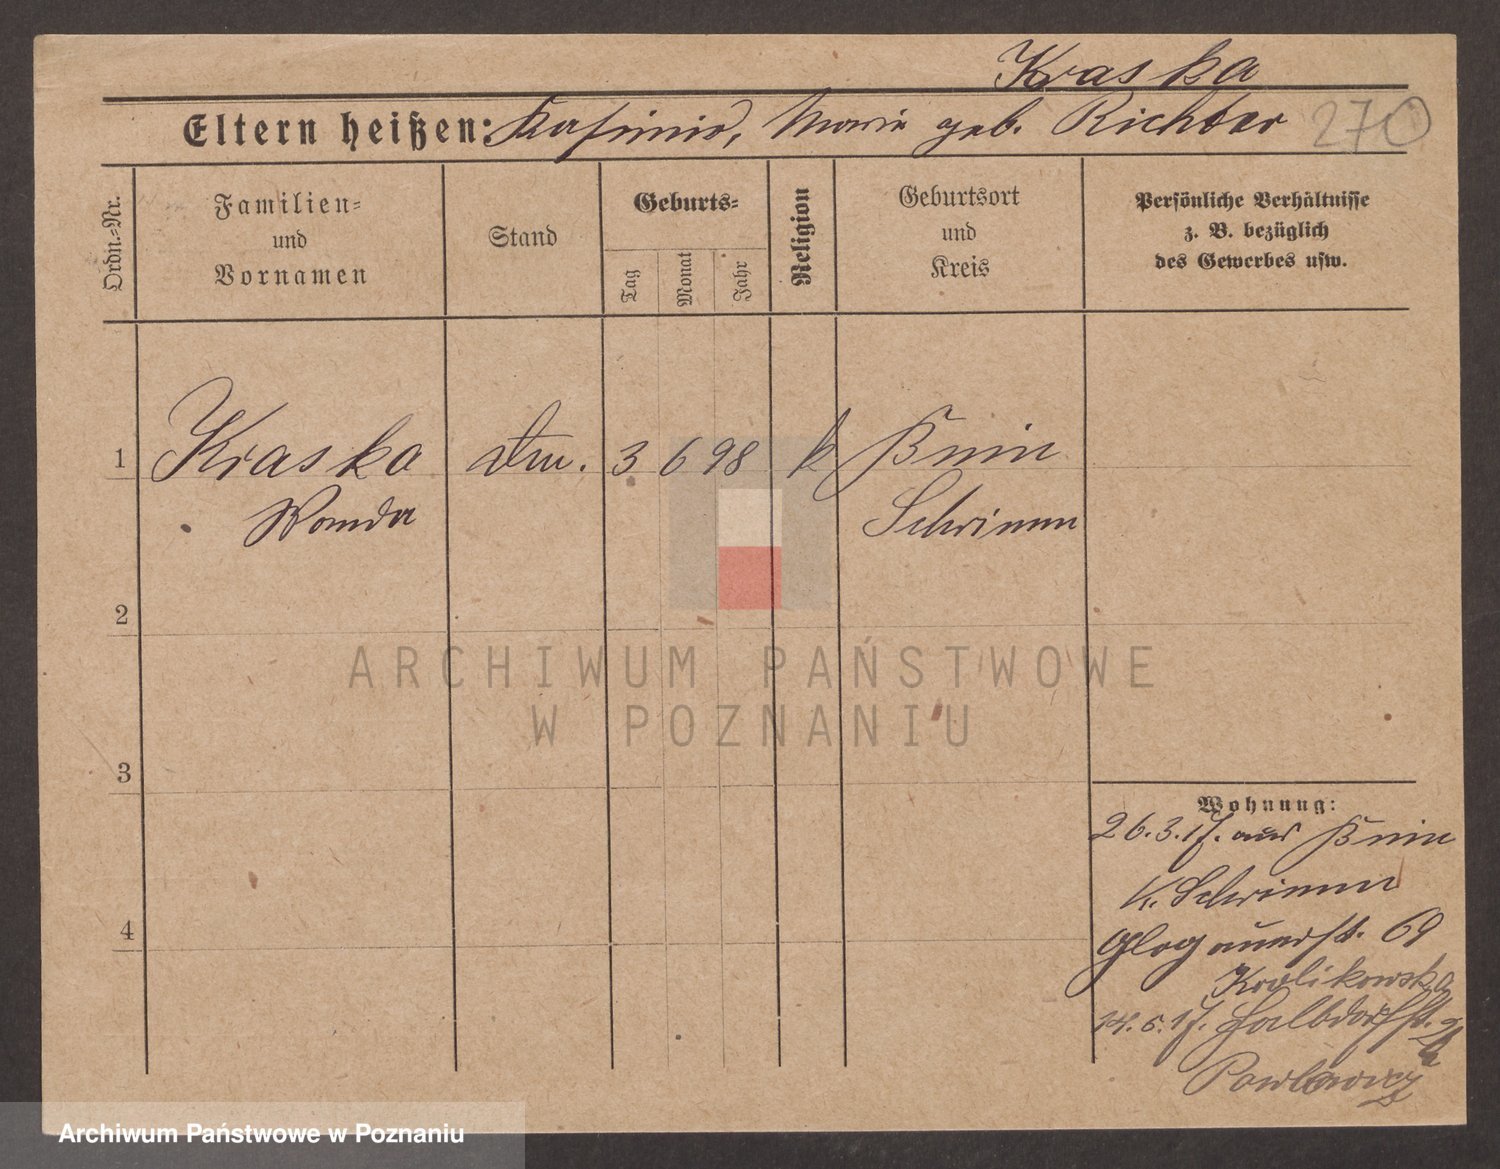 Kraska
Eltern heißen: Kasimir, Marie geb. Richter 270
Ordn.-Nr.
Familien-
und
Vornamen
Stand
Geburts-
Tag
Monat
Jahr
Religion
Geburtsort
und
Kreis
Persönliche Verhältnisse
z. B. bezüglich
des Gewerbes usw.
1 Kraska 3 6 98 k Bnin
Wanda Schrimm
2
ARCHIWUM PAŃSTWOWE
W POZNANIU
3
Wohnung:
26.3.17. aus Bnin
K. Schrimm
4
Glogauerst. 69
Kralikowska
14.5.17. Halbdorfst.
Pawlowicz
Archiwum Państwowe w Poznaniu